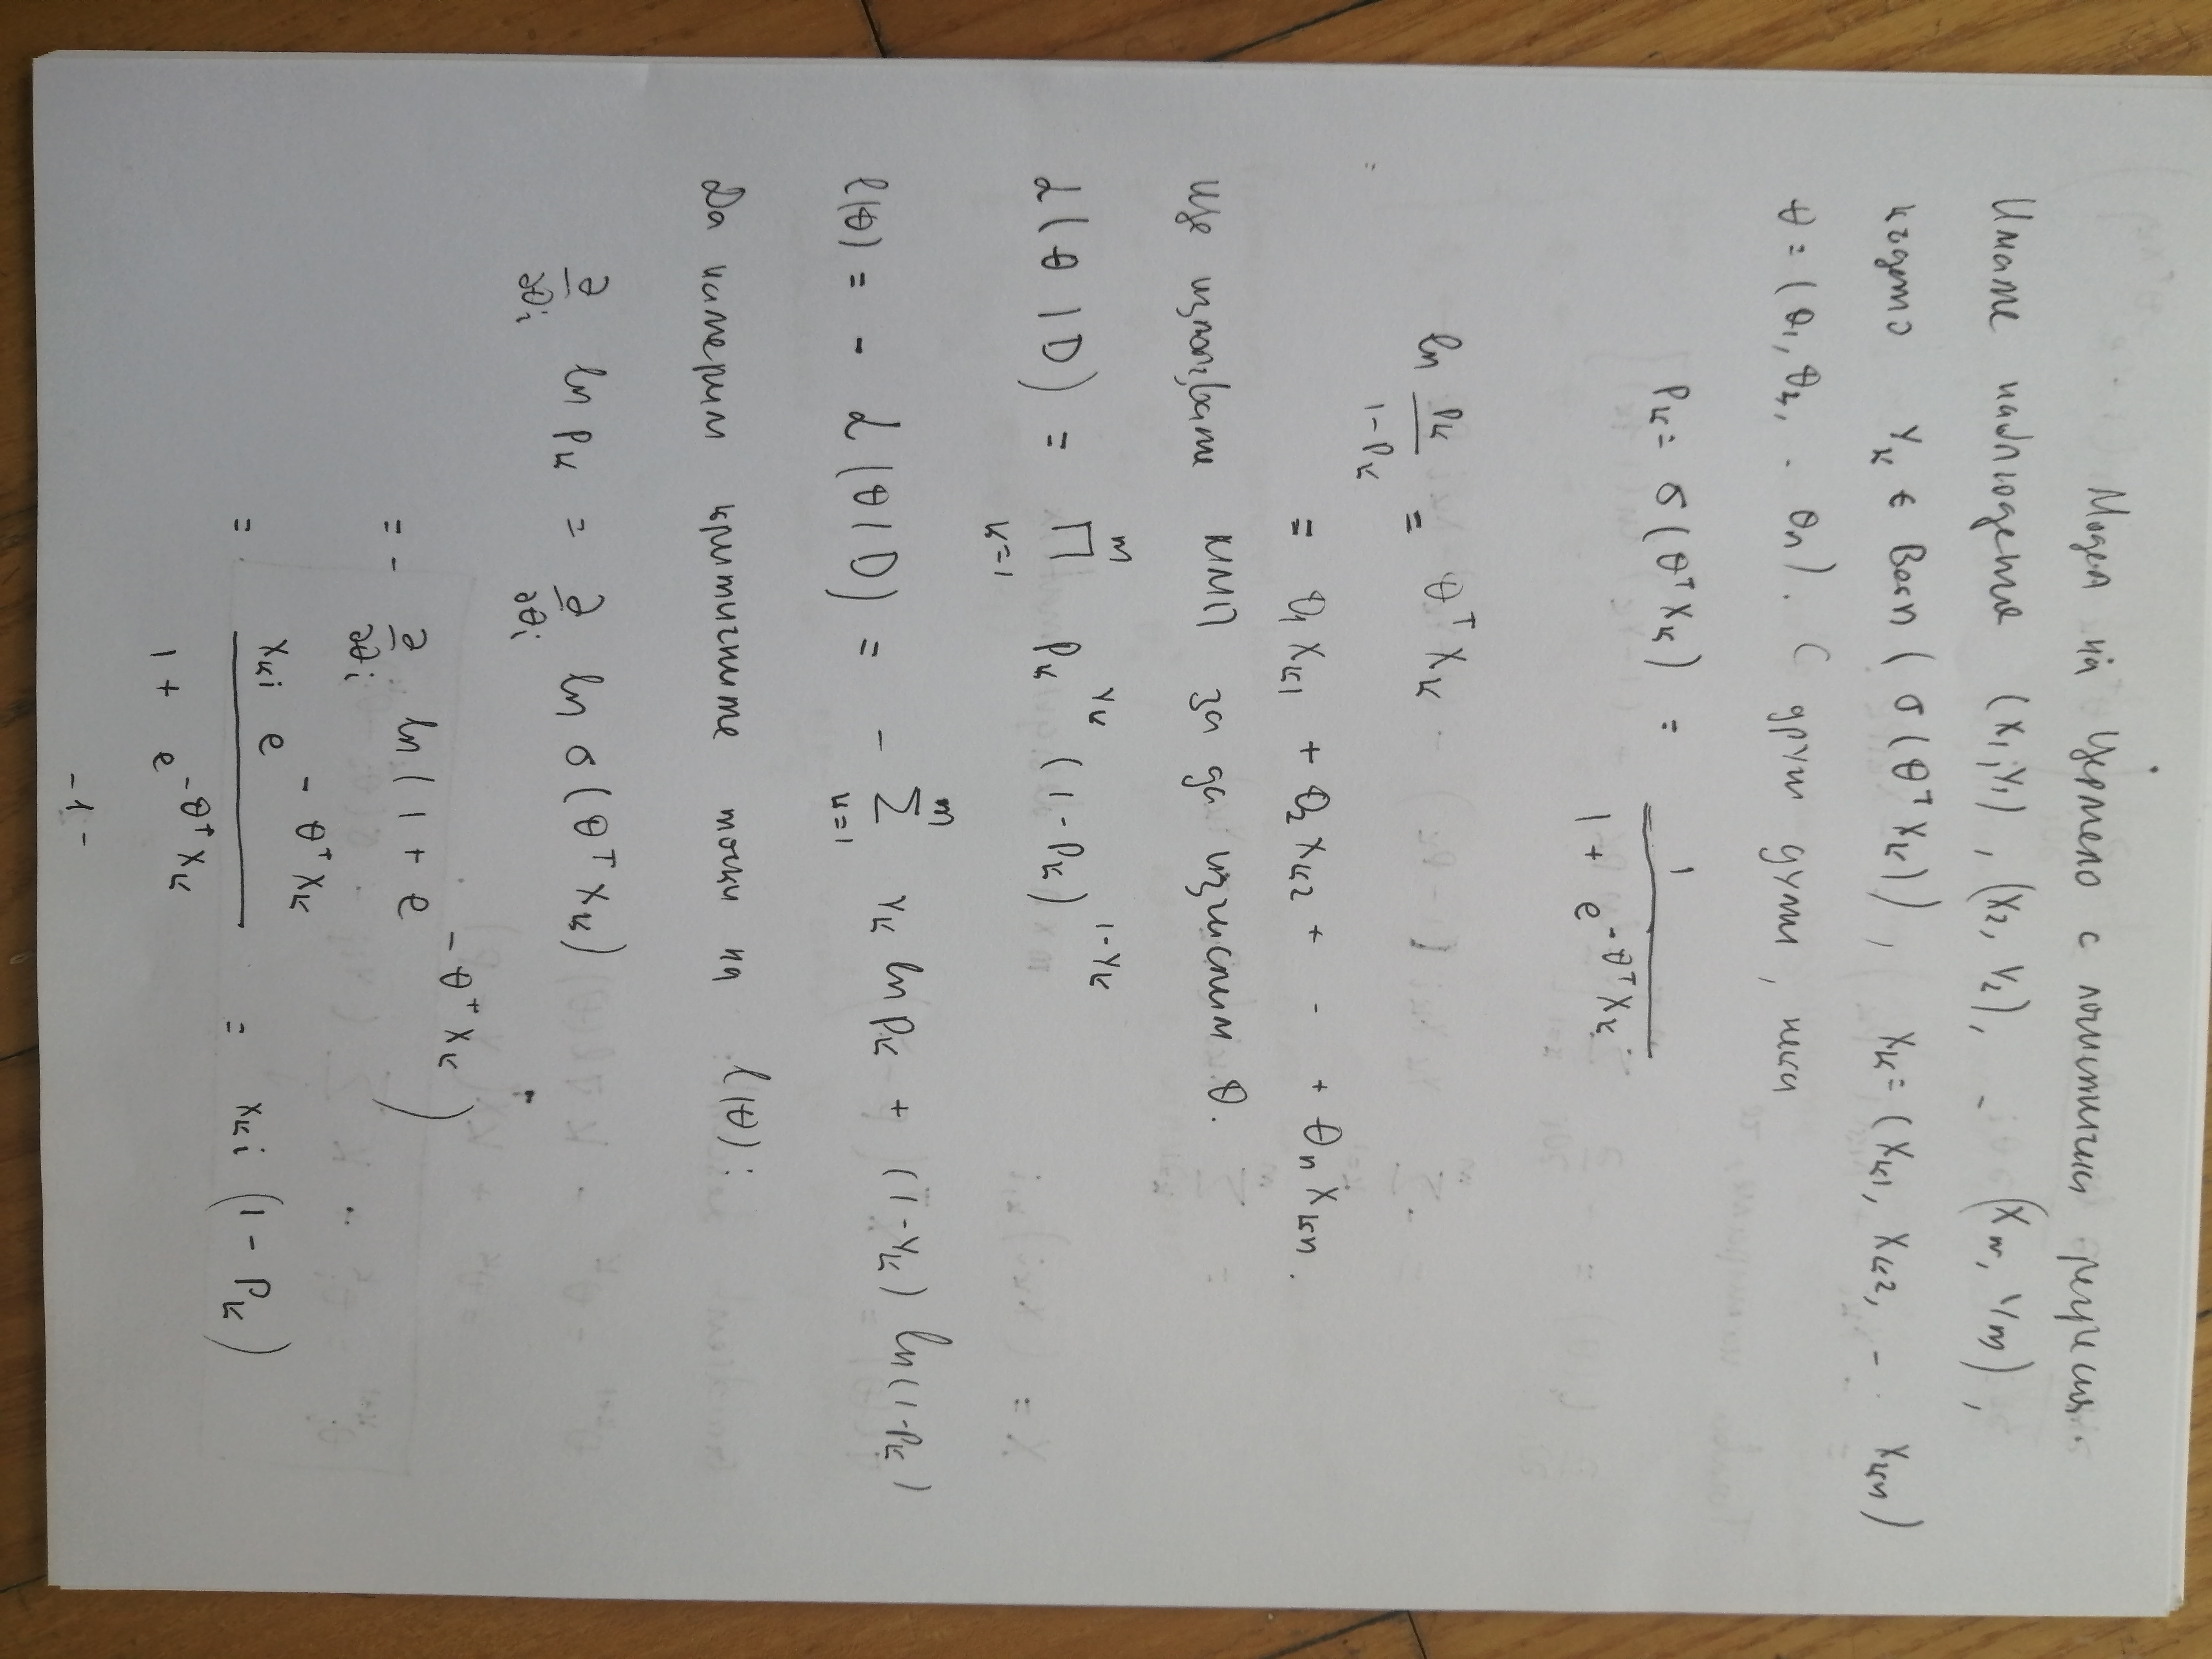 Модел на Църмело с логистична регресия
Имаме наблюдения (x₁, y₁), (x₂, y₂), - - (xₘ, yₘ),
където yₖ ∈ Bern(σ(θᵀxₖ)), xₖ = (xₖ₁, xₖ₂, - . xₖₙ)
θ = (θ₁, θ₂, - . θₙ). С други думи, нека
pₖ = σ(θᵀxₖ) = 1 / (1 + e^(-θᵀxₖ))
ln pₖ / (1-pₖ) = θᵀxₖ
= θ₁xₖ₁ + θ₂xₖ₂ + - . + θₙxₖₙ.
Ще използваме ММП за да изчислим θ.
L(θ|D) = ∏ₖ₌₁ᵐ pₖ^(yₖ) (1-pₖ)^(1-yₖ)
l(θ) = - L(θ|D) = - ∑ₖ₌₁ᵐ yₖ ln pₖ + (1-yₖ) ln(1-pₖ)
Да намерим критичните точки на l(θ):
∂/∂θᵢ ln pₖ = ∂/∂θᵢ ln σ(θᵀxₖ)
= - ∂/∂θᵢ ln(1 + e^(-θᵀxₖ))
= xₖᵢ e^(-θᵀxₖ) / (1 + e^(-θᵀxₖ)) = xₖᵢ(1 - pₖ)
-1-